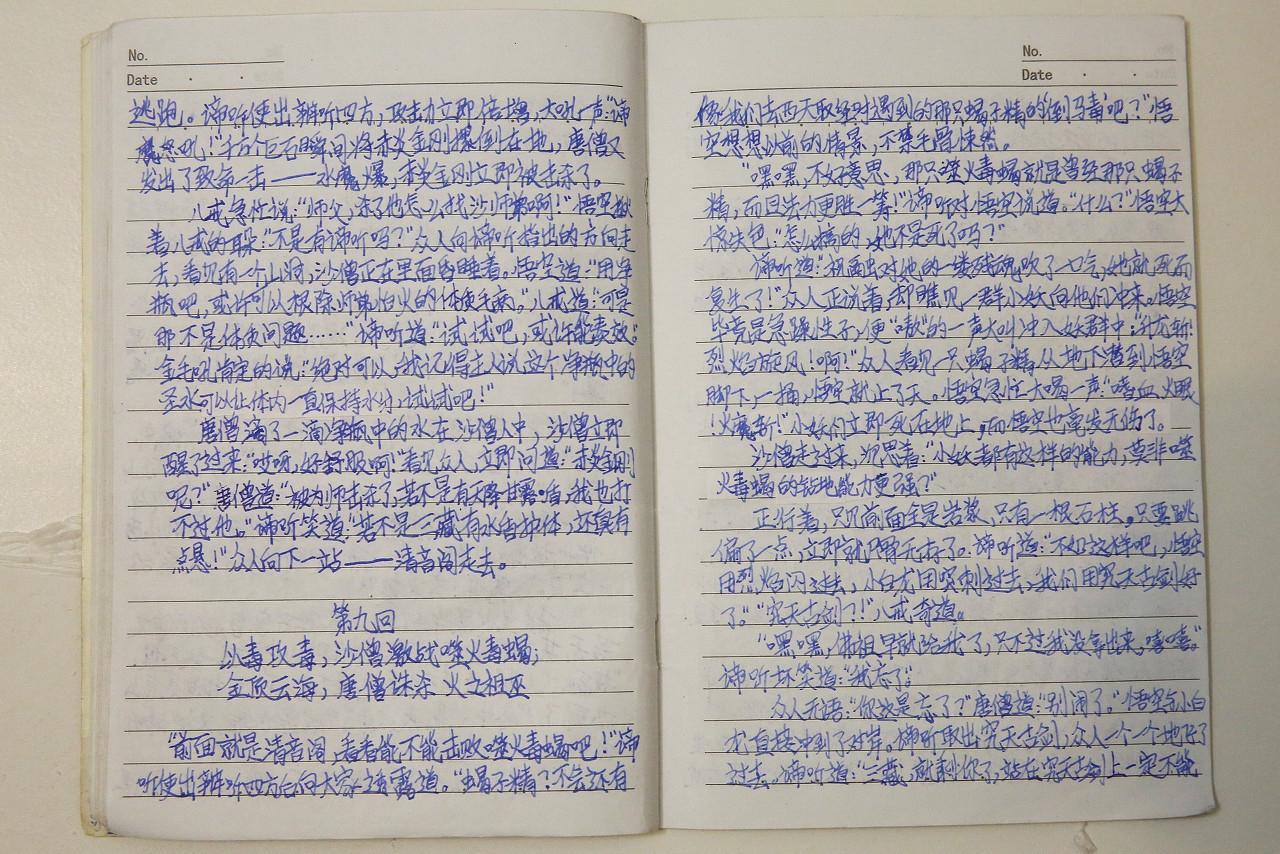 No.
Date
逃跑。谛听使出辨听四方，攻击力立即倍增，大吼一声：“谛
怒吼！”千万个巨石瞬间将赤炎金刚摞倒在地，唐僧又
发出了致命一击——水魔爆，赤炎金刚立即被击杀了。
八戒急忙说：“师父，杀了他怎么找沙师弟啊！”悟空揪
着八戒的耳朵：“不是有谛听吗？”众人向谛听指出的方向走
去，看见有一个山洞，沙僧正在里面昏睡着。悟空道：“用净
瓶吧，或许可以根除师弟怕火的体质毛病。”八戒道：“可是
那不是体质问题……”谛听道：“试试吧，或许能奏效。”
金毛吼肯定的说：“绝对可以，我记得主人说这个净瓶中的
圣水可以让体内一直保持水分，试试吧！”
唐僧滴了一滴净瓶中的水在沙僧人中，沙僧立即
醒了过来：“哎呀，好舒服啊！”看见众人，立即问道：“赤炎金刚
呢？”唐僧道：“被为师击杀了，若不是有天降甘露·盾，我也打
不过他。”谛听笑道：“若不是三藏有水盾护体，还真有
点悬！”众人向下一站——清音阁走去。
第九回
以毒攻毒，沙僧激战噬火毒蝎；
金顶云海，唐僧诛杀火之祖巫
“前面就是清音阁，看看能不能击败噬火毒蝎吧！”谛
听使出辨听四方后向大家透露道。“蝎子精？不会还有
No.
Date
像我们去西天取经时遇到的那只蝎子精的‘倒马毒’吧？”悟
空想想以前的情景，不禁毛骨悚然。
“嘿嘿，不好意思，那只噬火毒蝎就是曾经那只蝎子
精，而且法力更胜一筹！”谛听对悟空说道。“什么？”悟空大
惊失色：“怎么搞的，她不是死了吗？”
谛听道：“祝融对他的一缕残魂吹了一口气，她就死而
复生了！”众人正说着，却瞧见一群小妖向他们冲来。悟空
毕竟是急躁性子，便“嗷”的一声大叫冲入妖群中：“升龙斩！
烈焰旋风！啊！”众人看见一只蝎子精从地下潜到悟空
脚下，一捅，悟空就上了天。悟空急忙大喝一声：“嗜血火眼
！火魔斩！”小妖们立即死在地上，而悟空也毫发无伤了。
沙僧走过来，沉思着：“小妖都有这样的能力，莫非噬
火毒蝎的钻地能力更强？”
正行着，只见前面全是岩浆，只有一根石柱。只要跳
偏了一点，立即就尸骨无存了。谛听道：“不如这样吧，悟空
用烈焰闪过去，小白龙用突刺过去，我们用穷天古剑好
了。”“穷天古剑？！”八戒奇道。
“嘿嘿，佛祖早就给我了，只不过我没拿出来，嘻嘻。”
谛听坏笑道：“我忘了。”
众人无语：“你这是忘了？”唐僧道：“别闹了。”悟空和小白
龙直接冲到了对岸。谛听取出穷天古剑，众人一个个地飞了
过去，谛听道：“三藏，就剩你了，站在穷天古剑上一定不能